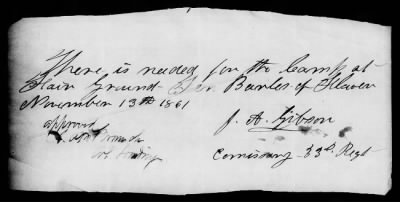 There is needed for the Camp at
Fair Ground Ten Barrels of Flower
November 13th 1861
approved
J. A. Gibson
Comissary 33d Regt